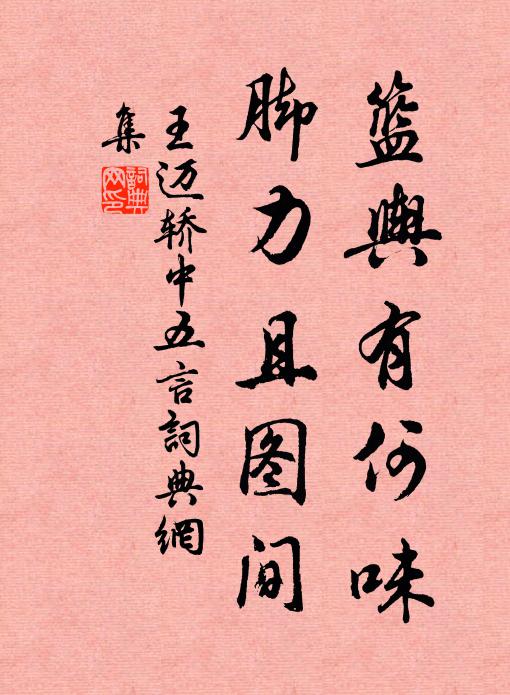 籃輿有何味
脚力且图间
王迈轿中五言詞典網
集
詞典
网印